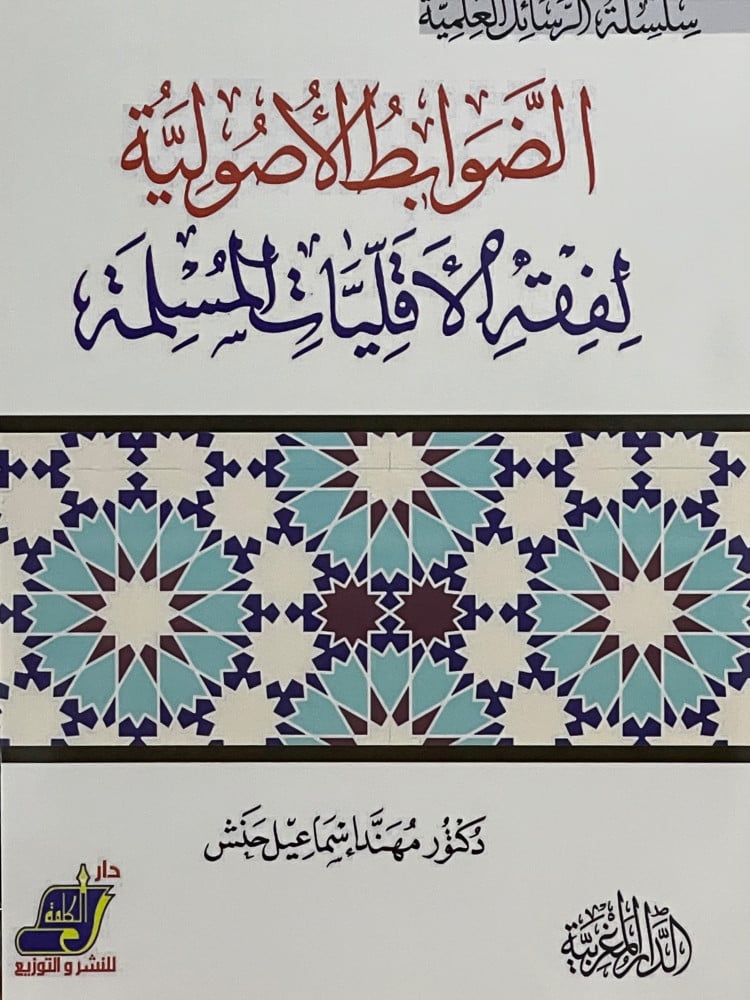 سلسلة الرسائل العلمية
الضَّوَابِطُ الأُصُولِيَّةُ
لِفِقْهِ الأَقَلِّيَّاتِ المُسْلِمَةِ
دكتور مهنَّد إسماعيل حنش
دار
الكلمة
للنشر و التوزيع
الدَّار المغربيَّة